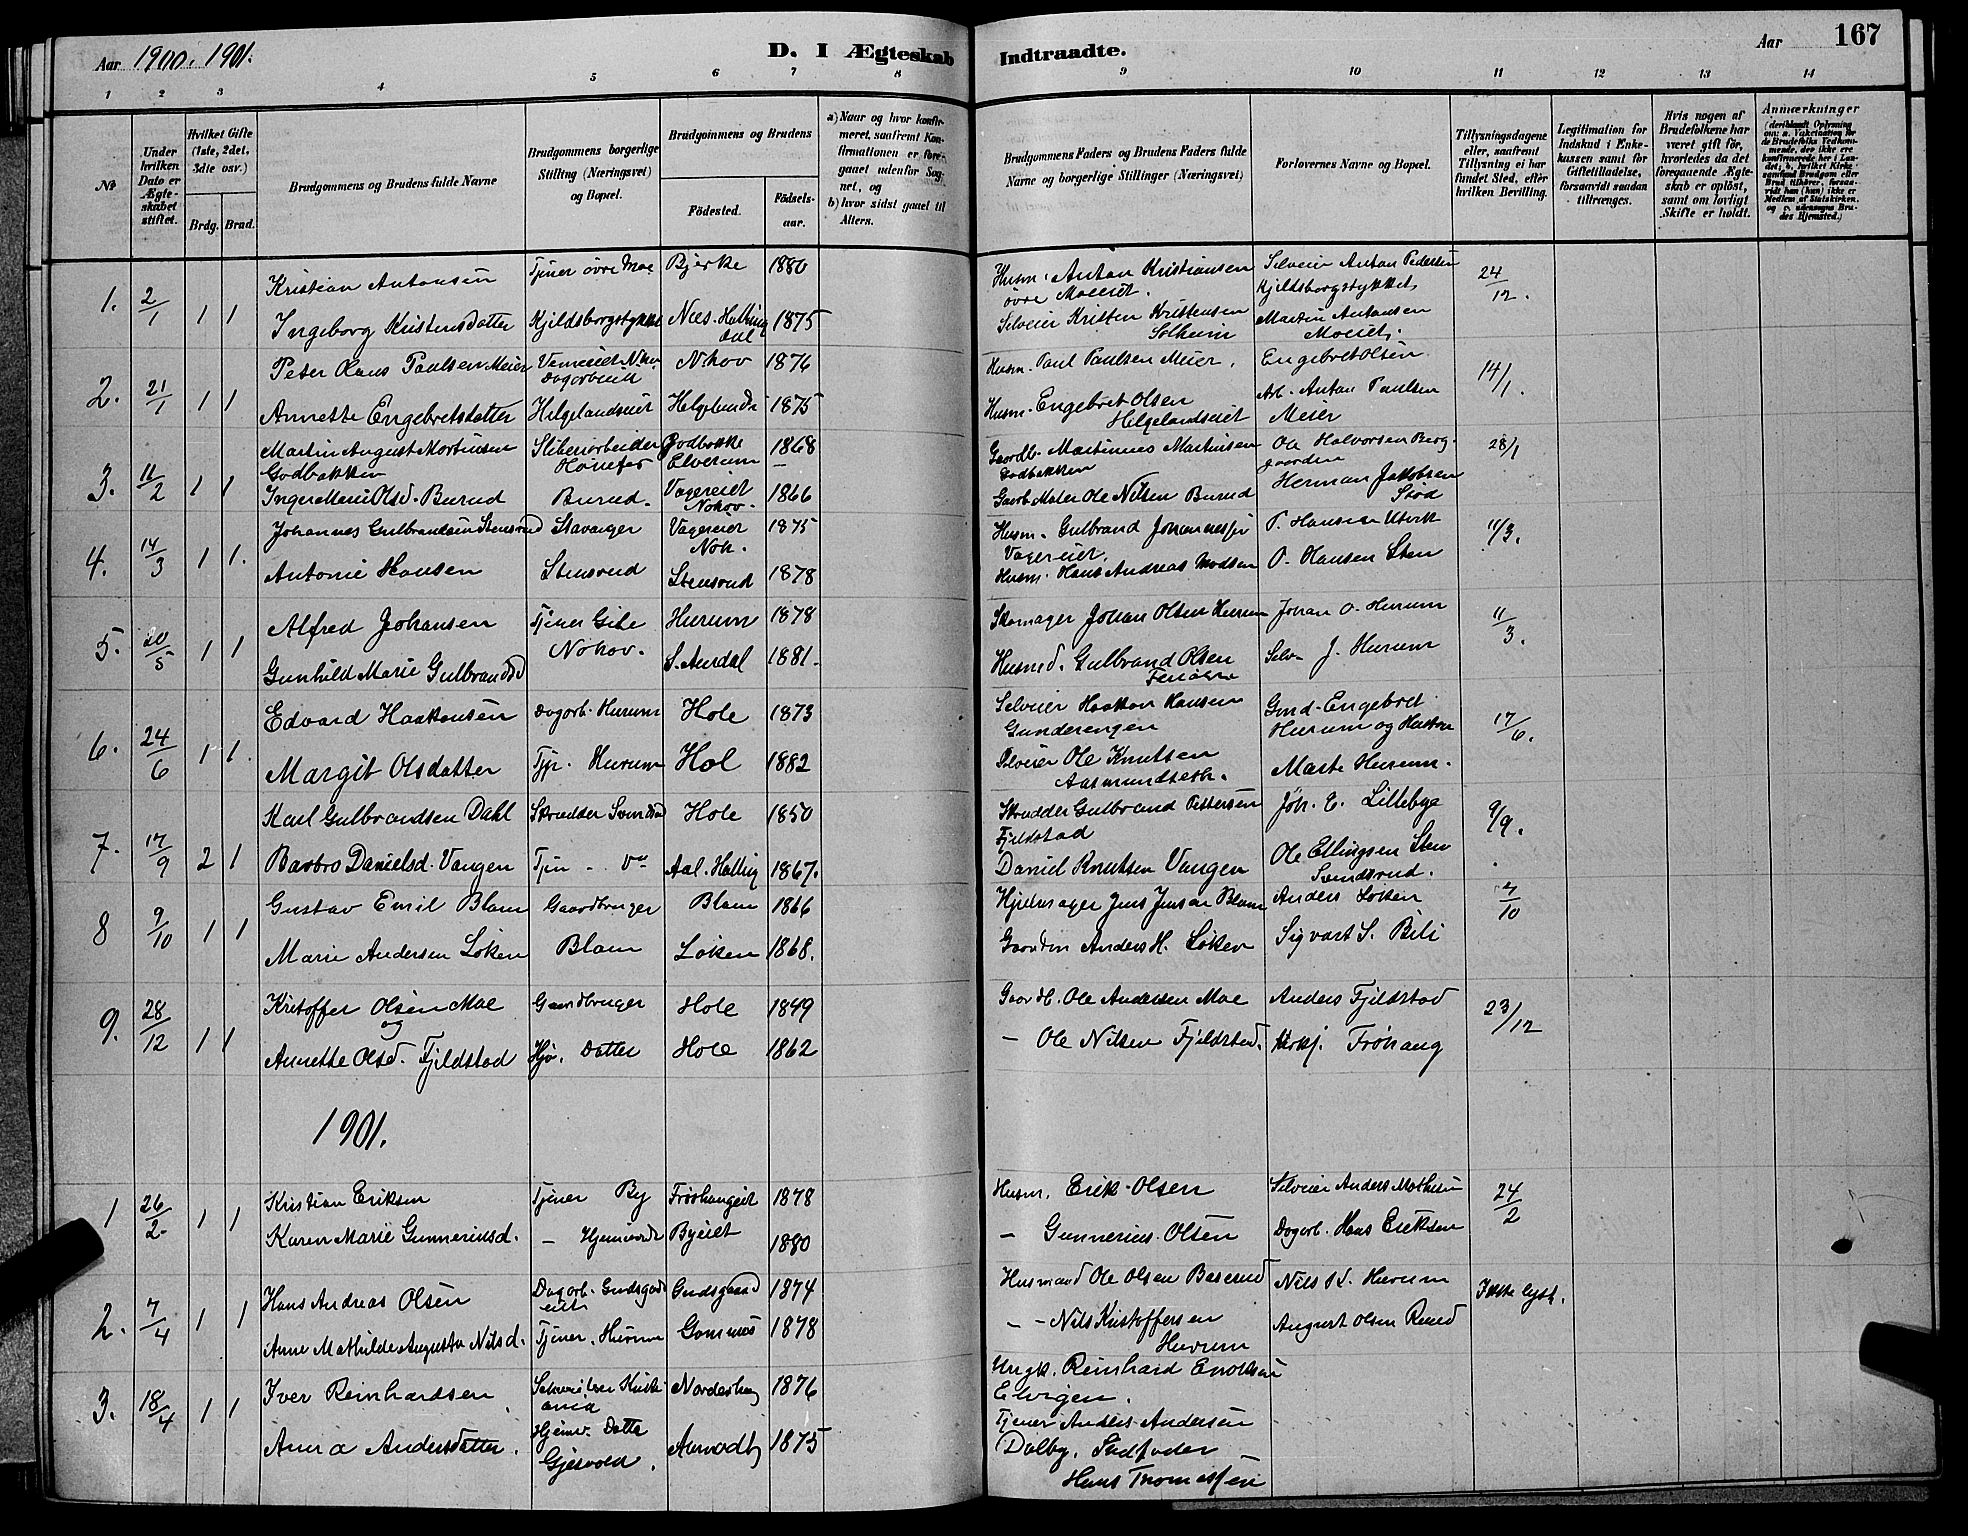 Aar 1900. 1901.
D. I Ægteskab Indtraadte.
Aar 167
1 2 3 4 5 6 7 8 9 10 11 12 13 14
Nr
Under hvilken Dato er Ægteskabet stiftet.
Hvilket Gifte (1ste, 2det, 3die osv.)
Brdg. Brud.
Brudgommens og Brudens fulde Navne
Brudgommens borgerlige Stilling (Næringsvei) og Bopæl.
Brudgommens og Brudens
Fødested.
Fødselsaar.
a) Naar og hvor konfirmeret, saafremt Konfirmationen er foregaaet udenfor Sognet, og
b) hvor sidst gaaet til Alters.
Brudgommens Faders og Brudens Faders fulde Navne og borgerlige Stillinger (Næringsvei)
Forlovernes Navne og Bopæl.
Tillysningsdagene eller, saafremt Tillysning ei har fundet Sted, efter hvilken Bevilling.
Legitimation for Indskud i Enkekassen samt for Giftetilladelse, forsaavidt saadan tiltrænges.
Hvis nogen af Brudefolkene har været gift før, hvorledes da det foregaaende Ægteskab er opløst, samt om lovligt Skifte er holdt.
Anmærkninger
(deriblandt Oplysning om: a. Vaksination for de Brudefolks Vedkommende, der ikke ere konfirmerede her i Landet; b. hvilket Kirkesamfund Brudgom eller Brud tilhører, forsaavidt han (hun) ikke er Medlem af Statskirken, og c. udensogns Brudes Hjemsted.)
1. 2/1 1 1 Kristian Antonsen Tjener øvre Moe Bjerke 1880 Husm. Anton Kristiansen øvre Moeeiet. Selveier Anton Pedersen Kjeldsborgstykket 24/12.
Ingeborg Kristensdatter Kjeldsborgstykket Næs. Hallingdal 1875 Selveier Kristen Kristensen Solheim Martin Antonsen Moeeiet.
2. 21/1 1 1 Peter Olaus Paulsen Meier Dagarbeid N.hov 1876 Husm. Paul Paulsen Meier. Engebret Olsen 14/1.
Annette Engebretsdatter Helgelandseiet Helgelands 1875 Husm. Engebret Olsen Helgelandseiet Arb. Anton Paulsen Meier
3. 11/2 1 1 Martin August Mortinsen Godbakken Sliberiarbeider Hønefos Godbakke Elverum 1868 Gaardb. Martinus Martinsen Godbakken Ole Halvorsen Berggaarden 28/1
Inger Marie Olsd. Burud Burud. Vagereiet Nohov. 1866 Maler Ole Nilsen Burud Herman Jakobsen Stød
4. 14/3 1 1. Johannes Gulbrandsen Stensrud Stavanger Vagereiet Noh. 1875 Husm. Gulbrand Johannessen Vagereiet. P. Hansen Utvik 11/3.
Antonie Hansen Stensrud Stensrud 1878 Husm. Hans Andreas Madsen O. Hansen Sten
5. 20/5 1 1 Alfred Johansen Tjener Gile Nohov. Hurum 1878 Skomager Johan Olsen Hurum Johan O. Hurum 11/3.
Gunhild Marie Gulbrandsd S. Aurdal 1881. Gulbrand Olsen Selv J. Hurum
6. 24/6 1 1. Edvard Haakonsen Dagarb. Hurum Hole 1873 Selveier Haakon Hansen Gunderengen Gmd. Engebret Hurum og Hustru 17/6.
Margit Olsdatter Tjp. Hurum Hol 1882 Selveier Ole Knutsen Marte Hurum.
7. 17/9 2 1 Karl Gulbrandsen Dahl Skrædder Svendsrud Hole 1850 Skrædder Gulbrand Pettersen Fjeldstad Joh. E. Lillebye 9/9.
Barbro Danielsd. Vangen Tjen Aal. Halling 1867. Daniel Knutsen Vangen Ole Ellingsen Sten Svendsrud.
8 9/10 1 1 Gustav Emil Blam Gaardbruger Blam 1866 Jens Jensen Blam Anders Løken 7/10
Marie Andersen Løken Blam Løken 1868. Gaardm Anders H. Løken Sigvart S. Bili
9. 28/12 1 1 Kristoffer Olsen Moe og Gaardbruger Hole 1849 Gaardb. Ole Andersen Moe Anders Fjeldstad 23/12
Annette Olsd. Fjeldstad Hjv. Datter Hole 1862 – Ole Nilsen Fjeldstad. Kirksj. Frøhaug
1901.
1 26/2 1 1 Kristian Eriksen Tjener By Frøshaugeiet 1878 Husm. Erik Olsen Selveier Anders Mathisen 24/2
Karen Marie Gunneriusd. – Hjemværde Byeiet 1880 – Gunnerius Olsen Dagarb. Hans Eriksen
2. 7/4 1 1 Hans Andreas Olsen Dagarb. Gudsgardeiet Gudsgaard 1874 Husmand Ole Olsen Baserud Nils N. Hurum Ikke lyst.
Anne Mathilde Augusta Nilsd. Tjener. Hurum Gomnæs 1878 – Nils Kristoffersen Hurum August Olsen Rud
3. 18/4 1 1 Iver Reinhardsen Kristiania Norderhov 1876 Ungk. Reinhard Enoksen Elvigen.
Anna Andersdatter. Hjemv. Datter Gjesvold. 1875 Tjener Anders Andersen Dalby. Stedfader Hans Thomassen